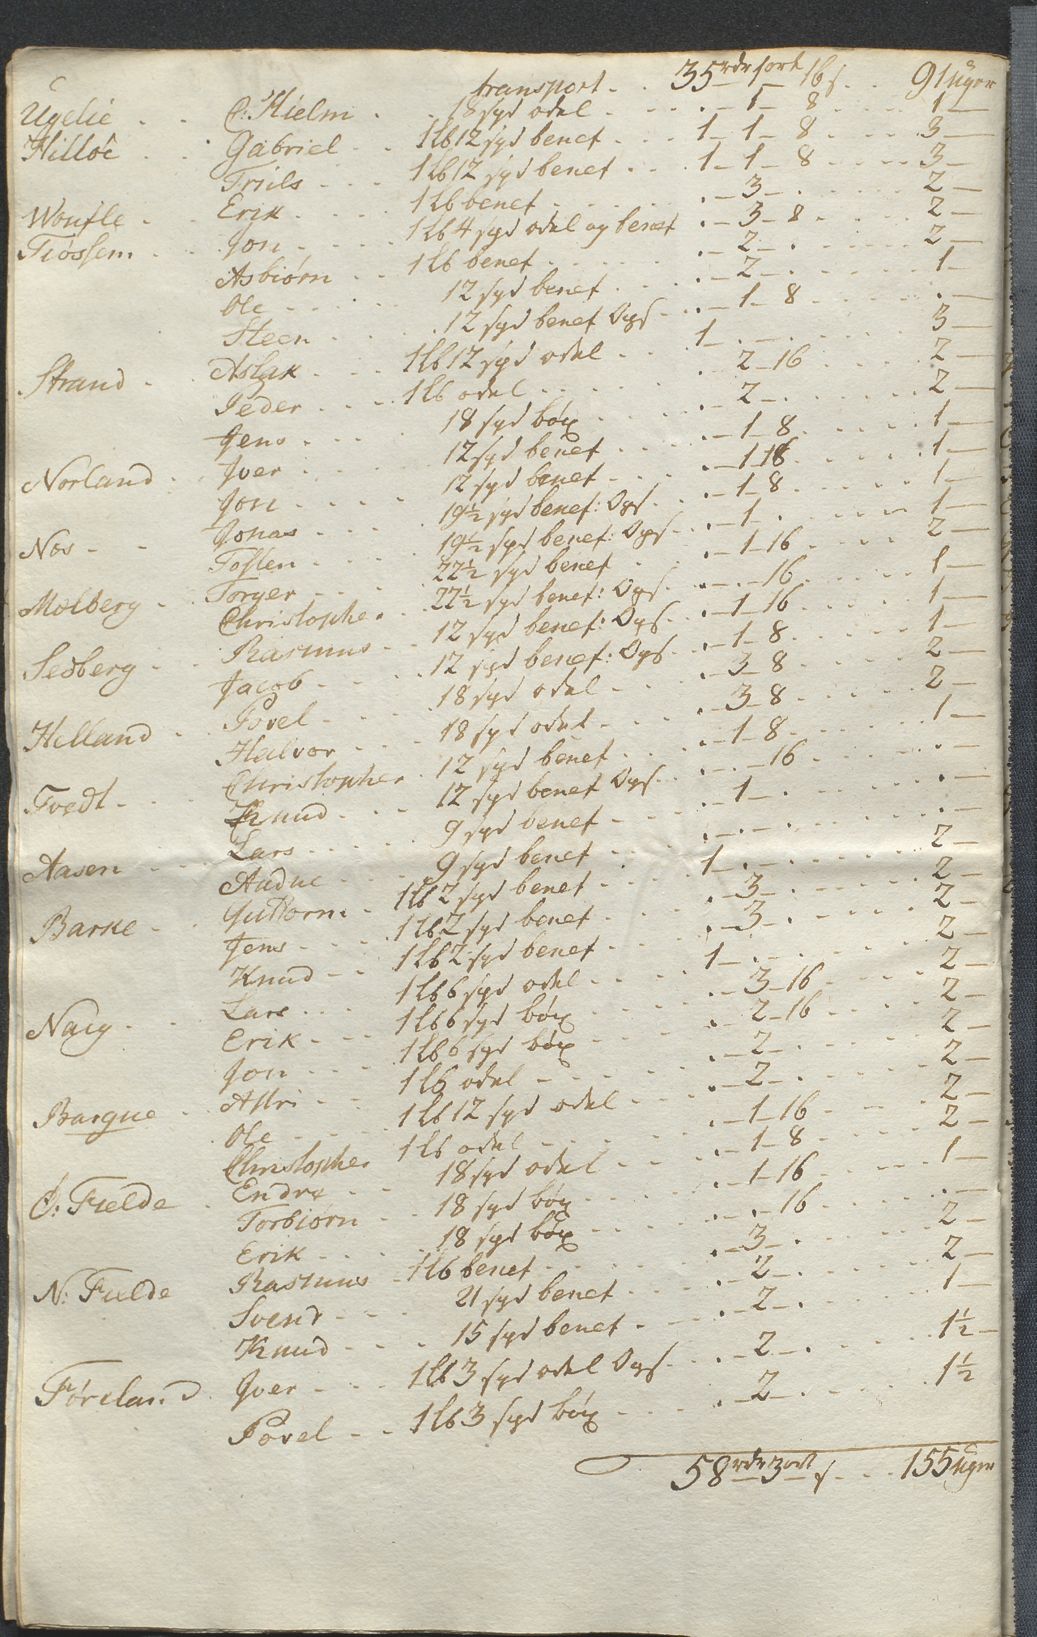 transport - - 35 rdr 1 ort 16 s - - 91 uger
Ugelie - - C: Hielm - - 18 syd odel - - - 1 - 8 - - 1 -
Hilloe - - Gabriel - - 1 lb 12 syd benef - - 1 - 1 - 8 - - 3 -
Troels - - 1 lb 12 syd benef - - 1 - 1 - 8 - - 3 -
Woufle - - Erik - - 1 lb benef - - - 3 - - - 2 -
Tiössem - - Jon - - 1 lb 4 syd odel og benef - 3 - 8 - - 2 -
Asbiørn - - 1 lb benef - - - 2 - - - 2 -
Ole - - 12 syd benef - - - 2 - - - 1 -
Steen - - 12 syd benef Ops - - - 1 - 8 - - -
Strand - - Aslak - - 1 lb 12 syd odel - - 1 - - - 3 -
Peder - - 1 lb odel - - - 2 - 16 - - 2 -
Jens - - 18 syd böx - - - 2 - - - 2 -
Norland - Iver - - 12 syd benef - - - 1 - 8 - - 1 -
Jon - - 12 syd benef - - - 1 - 18 - - 1 -
Nos - - Jonas - - 19½ syd benef: Ops - - 1 - 8 - - 1 -
Tosten - - 19½ syd benef: Ops - - 1 - - - 1 -
Molberg - Torger - - 22½ syd benef - - - 1 - 16 - - 2 -
Christopher - - 22½ syd benef: Ops - - - 16 - - 1 -
Sedberg - - Rasmus - - 12 syd benef: Ops - - 1 - 16 - - 1 -
Jacob - - 12 syd benef: Ops - - 1 - 8 - - 1 -
Hilland - Povel - - 18 syd odel - - - 3 - 8 - - 2 -
Halvor - - 18 syd odel - - - 3 - 8 - - 2 -
Tvedt - - Christopher - 12 syd benef - - - 1 - 8 - - 1 -
Knud - - 12 syd benef Ops - - - 16 - - -
Aasen - - Lars - - 9 syd benef - - - 1 - - - -
Audne - - 9 syd benef - - - - - - -
Barke - - Guttorm - 1 lb 2 syd benef - - 1 - - - 2 -
Jens - - 1 lb 2 syd benef - - - 3 - - - 2 -
Knud - - 1 lb 2 syd benef - - - 3 - - - 2 -
Naig - - Lars - - 1 lb 6 syd odel - - 1 - - - 2 -
Erik - - 1 lb 6 syd böx - - - 3 - 16 - - 2 -
Jon - - 1 lb 6 syd böx - - - 2 - 16 - - 2 -
Bargue - - Attri - - 1 lb odel - - - 2 - - - 2 -
Ole - - 1 lb 12 syd odel - - - 2 - - - 2 -
Christopher 1 lb odel - - - 1 - 16 - - 2 -
Ö: Fielde - Endre - - 18 syd odel - - - 1 - 8 - - 2 -
Torbiørn - - 18 syd böx - - - 1 - 16 - - 1 -
Erik - - 18 syd böx - - - - 16 - - -
N: Fielde Rasmus - 1 lb benef - - - 3 - - - 2 -
Svend - - 21 syd benef - - - 2 - - - 2 -
Knud - - 15 syd benef - - - 2 - - - 1 -
Föreland Iver - - 1 lb 3 syd odel Ops - - 2 - - - 1½ -
Povel - - 1 lb 3 syd böx - - - 2 - - - 1½
58 rdr 3 ort s - - 155 uger